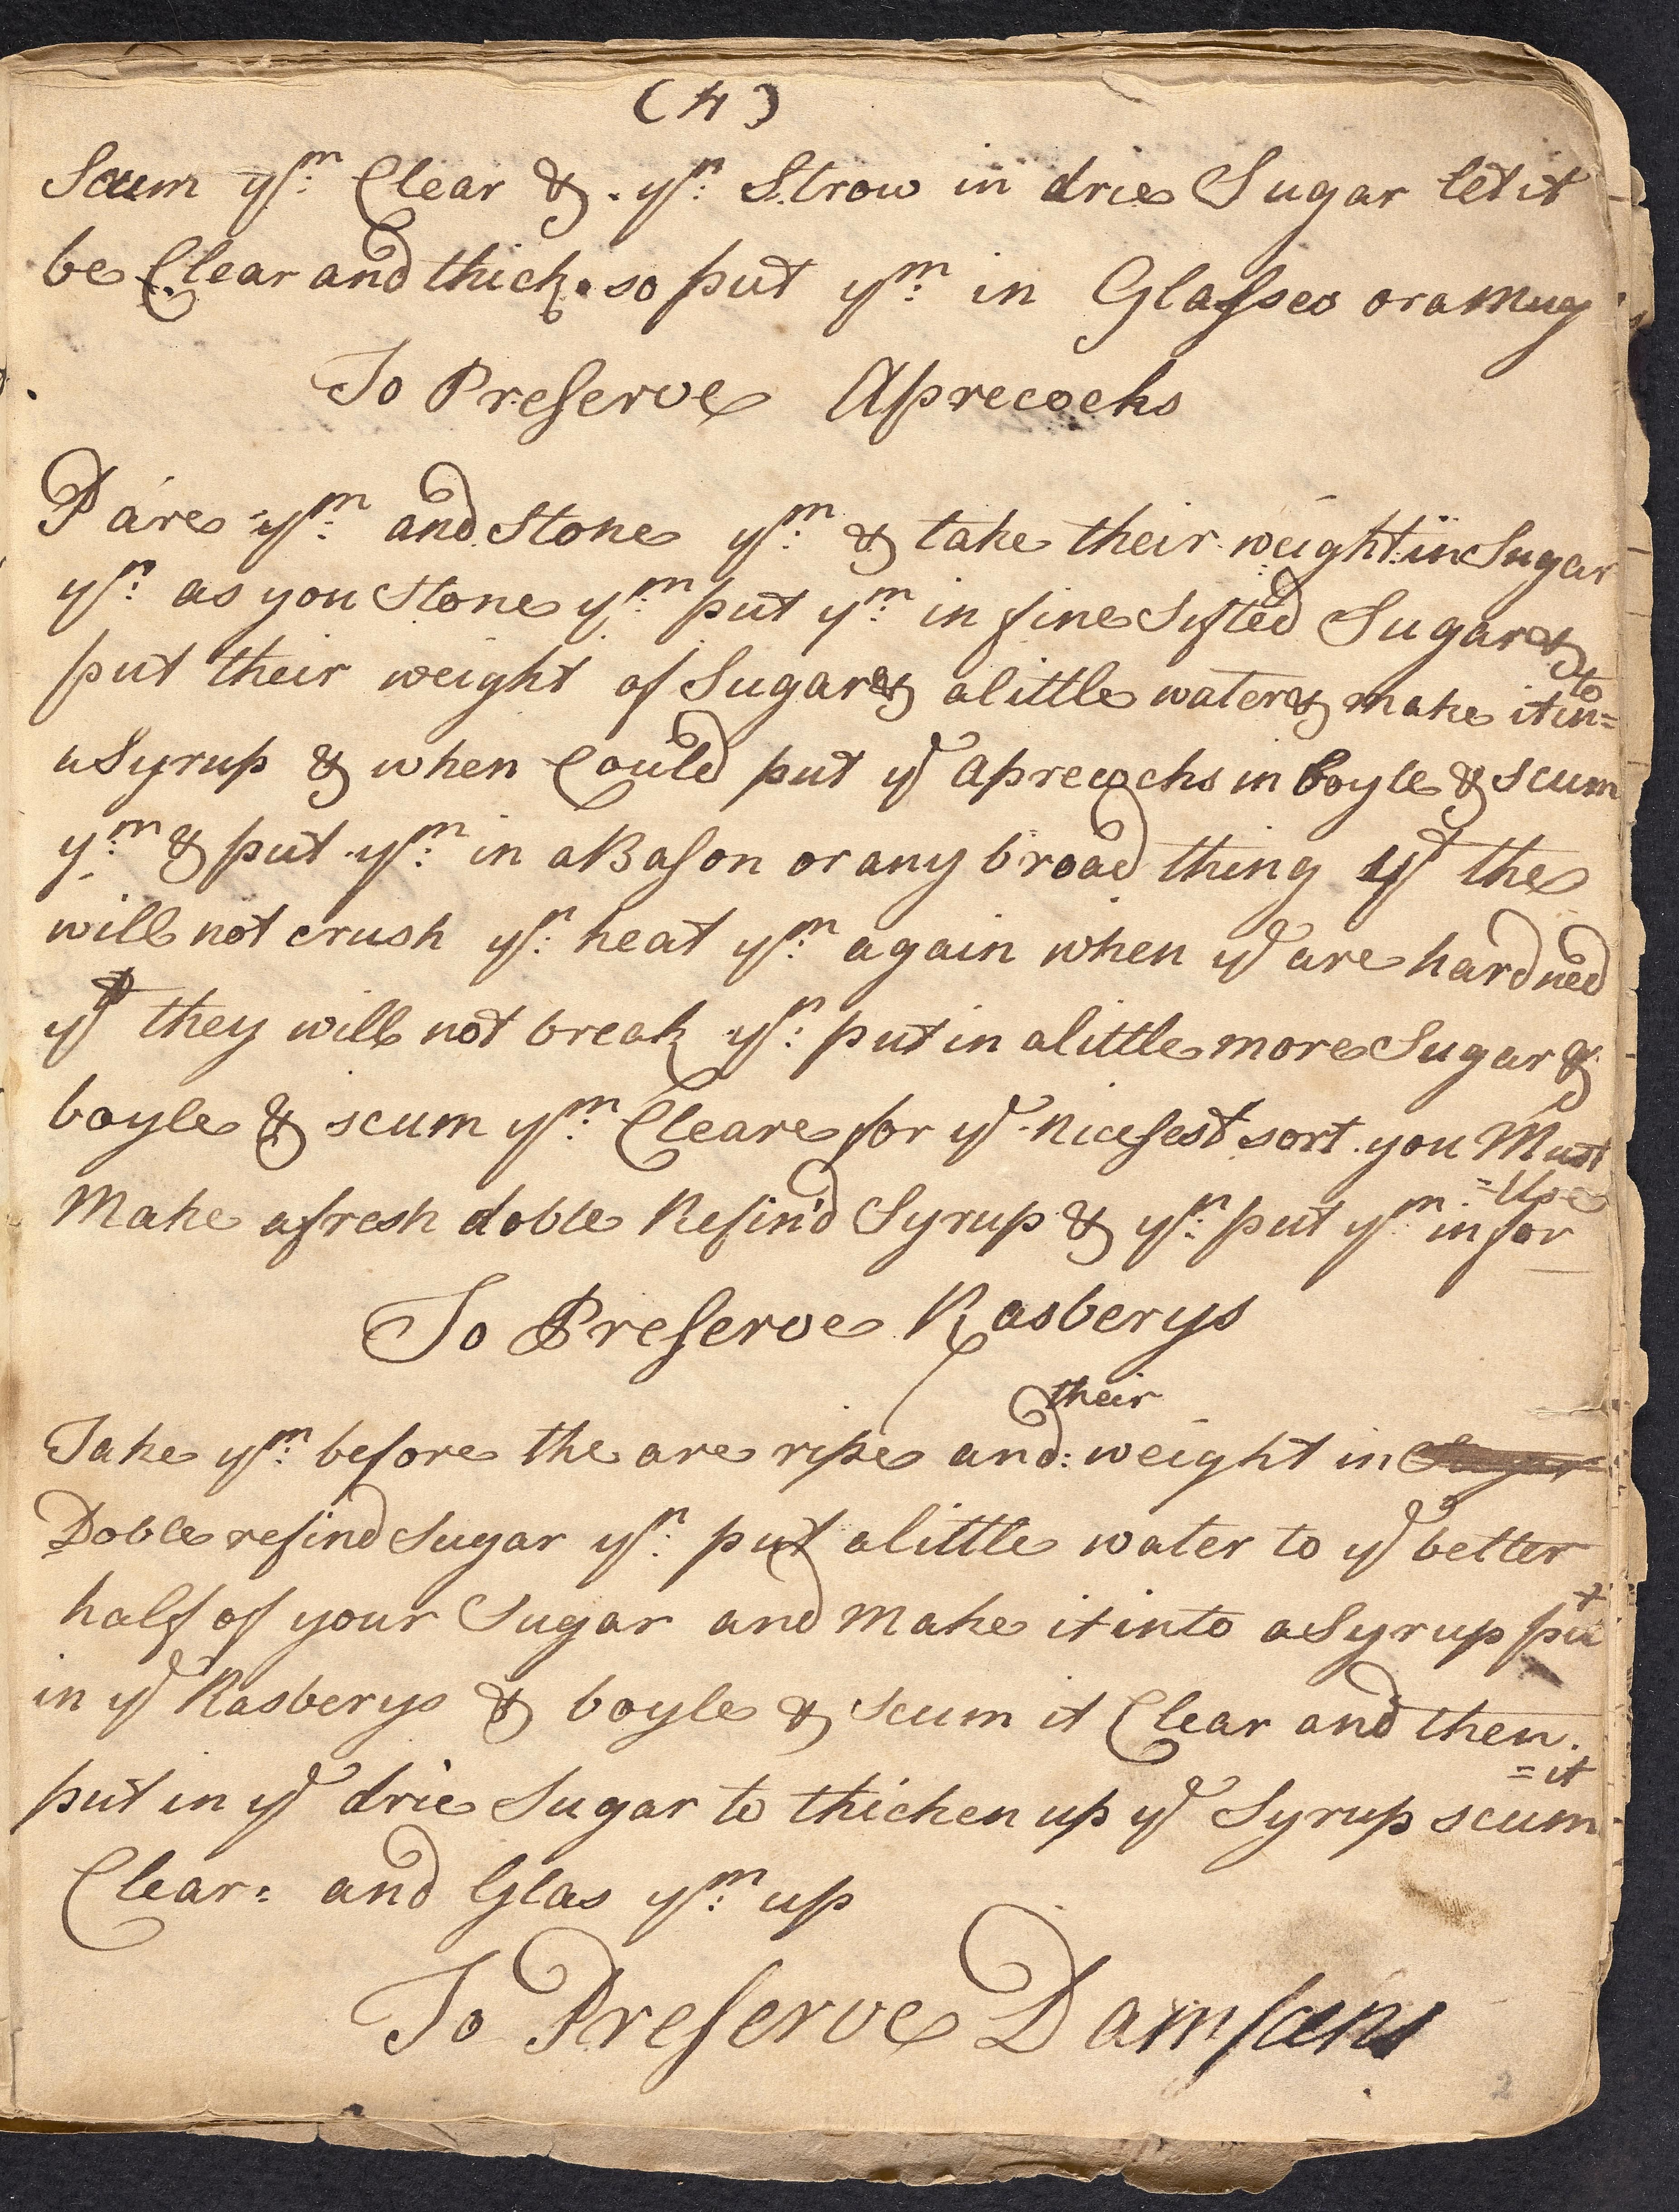 (4)
Scum ym: Clear & yn: Strow in drie Sugar let it
be Clear and thick so put ym: in Glasses or a Mug
To Preserve Aprecochs
Pare ym: and Stone ym: & take their weight in Sugar
yn: as you Stone ym: put ym: in fine Sifted Sugar &
put their weight of Sugar & a little water & make it in=to
a Syrup & when Could put ye Aprecochs in boyle & scum
ym: & put ym: in a Bason or any broad thing yt the
will not crush yn: heat ym: again when ye are hardned
yt they will not break yn: put in a little more Sugar &
boyle & scum ym: Cleare for ye nicesest sort you Must
Make a fresh doble Refin'd Syrup & yn: put ym: in for =Use
To Preserve Rasberys
Take ym: before the are ripe and: their weight in Sugar
Doble refind Sugar yn: put a little water to ye better
half of your Sugar and Make it into a Syrup put
in ye Rasberys & boyle & Scum it Clear and then.
put in ye drie Sugar to thicken up ye Syrup scum =it
Clear: and Glas ym: up
To Preserve Damsens
2